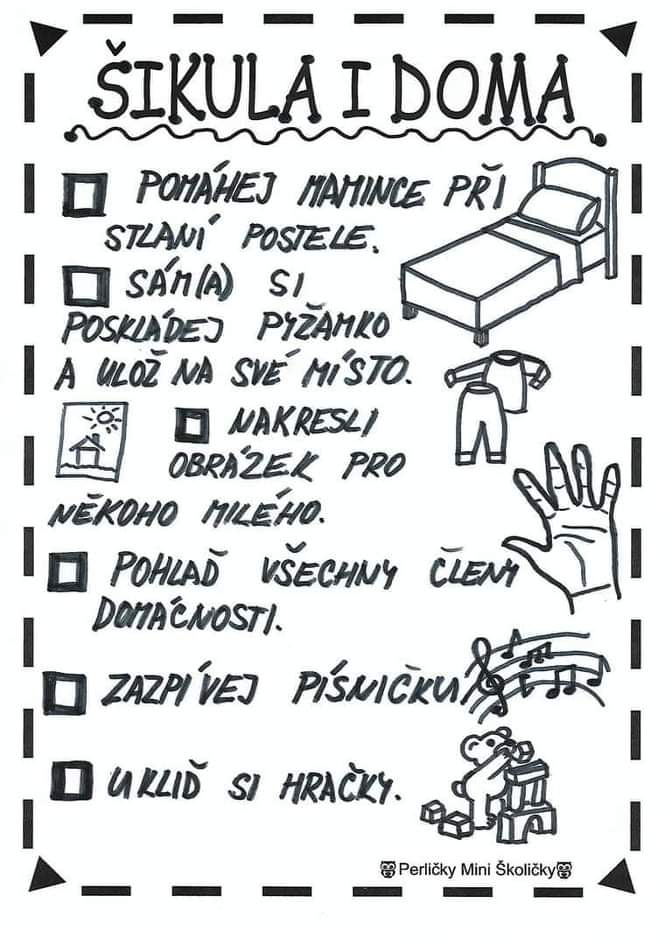 ŠIKULA I DOMA
POMÁHEJ MAMINCE PŘI
STLANÍ POSTELE.
SÁM(A) SI
POSKLÁDEJ PYŽAMKO
A ULOŽ NA SVÉ MÍSTO.
NAKRESLI
OBRÁZEK PRO
NĚKOHO MILÉHO.
POHLAĎ VŠECHNY ČLENY
DOMÁCNOSTI.
ZAZPÍVEJ PÍSNIČKU.
UKLIĎ SI HRAČKY.
Perličky Mini Školičky